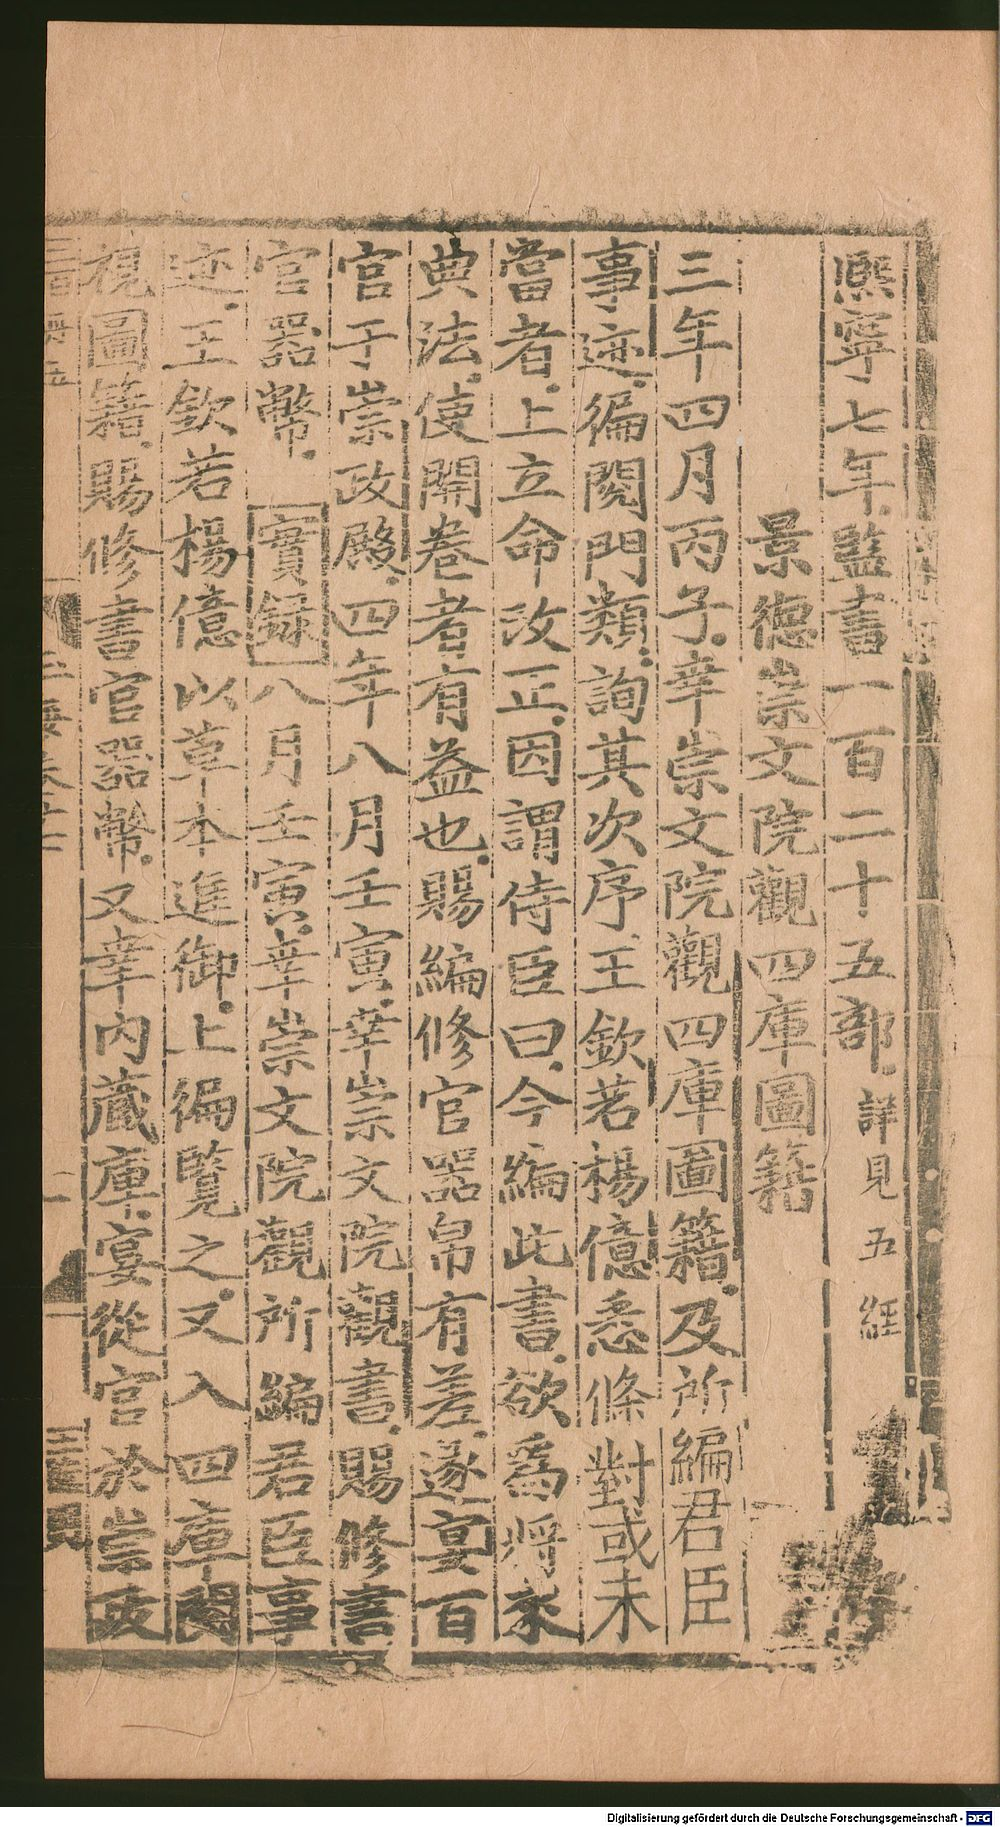 熙寧七年監書一百二十五部詳見五經
景德崇文院觀四庫圖籍
三年四月丙子幸崇文院觀四庫圖籍及所編君臣
事迹徧閱門類詢其次序王欽若楊億悉條對或未
當者上立命改正因謂侍臣曰今編此書欲為將來
典法使開卷者有益也賜編修官器帛有差遂宴百
官于崇政殿四年八月壬寅幸崇文院觀書賜修書
官器幣 實録 八月壬寅幸崇文院觀所編君臣事
迹王欽若楊億以草本進御上徧覽之又入四庫閱
視圖籍賜修書官器幣又幸內藏庫宴從官於崇政
Digitalisierung gefördert durch die Deutsche Forschungsgemeinschaft - DFG